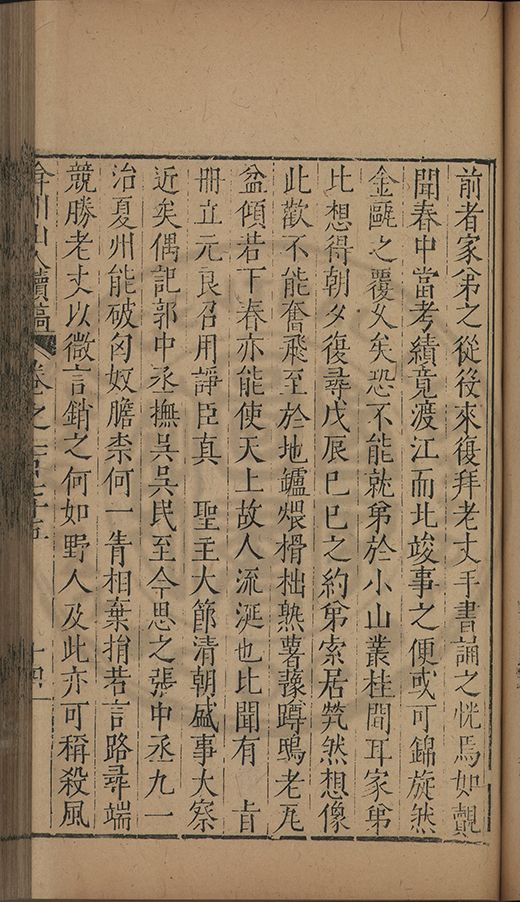 前者家弟之從後來復拜老丈手書誦之恍焉如覿
聞春中當考績竟渡江而北竣事之便或可錦旋然
金甌之覆久矣恐不能就弟於小山叢桂間耳家弟
比想得朝夕復尋戊辰巳巳之約弟索居煢然想像
此歡不能奮飛至於地鑪煨榾柮熟薯蕷蹲鴟老瓦
盆傾若下春亦能使天上故人流涎也比聞有 旨
冊立元良召用諍臣真 聖主大節清朝盛事大察
近矣偶記郭中丞撫吳吳民至今思之張中丞九一
治夏州能破匈奴膽柰何一眚相棄捐若言路尋端
競勝老丈以微言銷之何如野人及此亦可稱殺風
弇州山人續稿 卷之一百七十五 十四